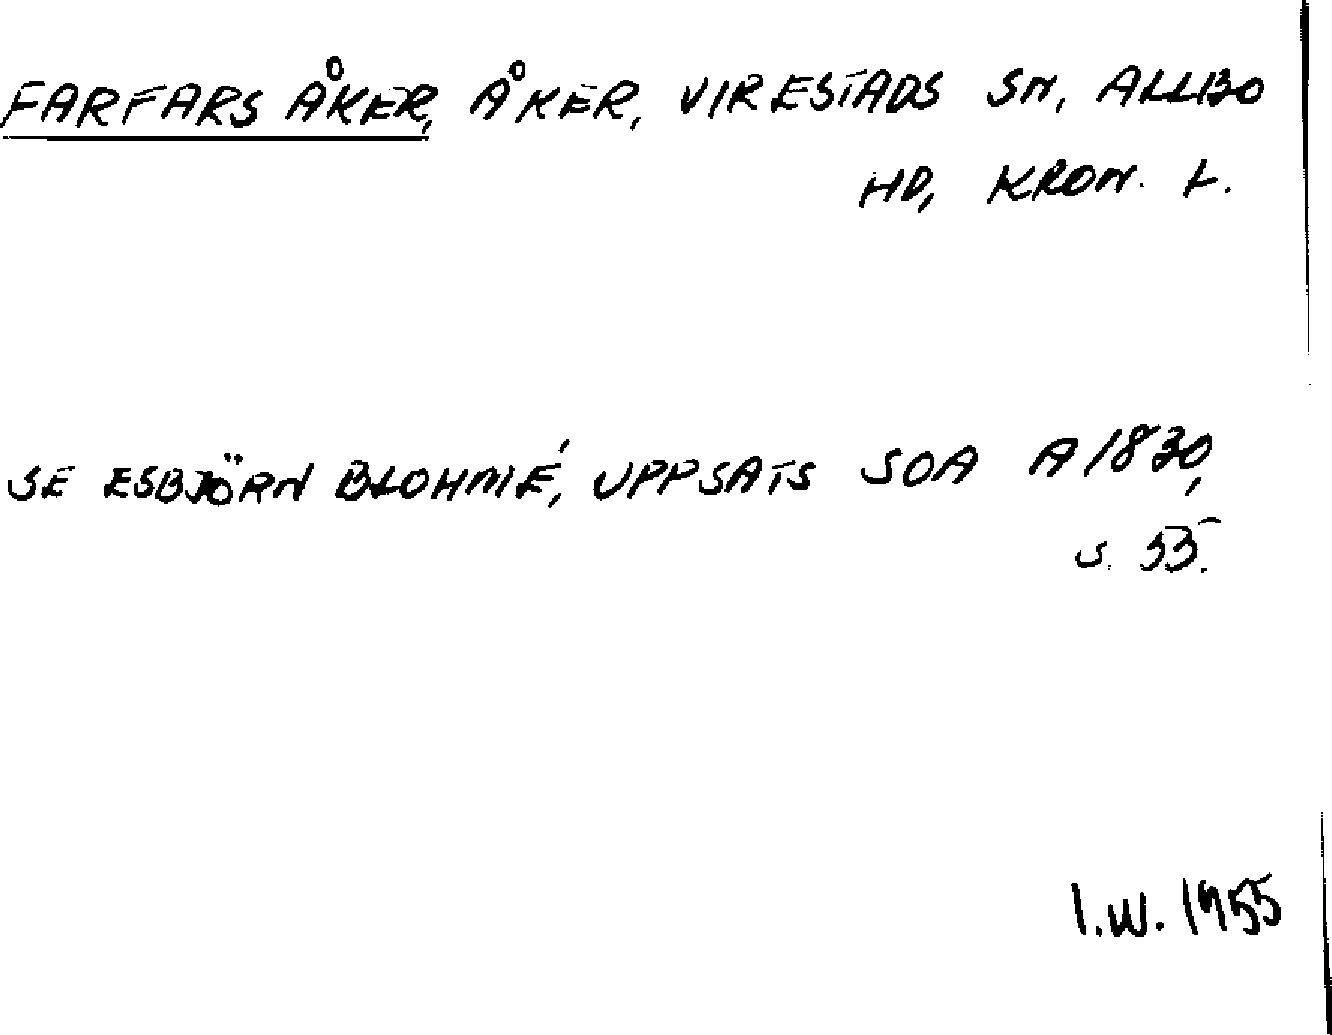 FARFARS ÅKER, ÅKER, VIRESTADS SN, ALLBO
HD, KRON. L.
SE ESBJÖRN BLOHMÉ, UPPSATS SOA A 1830,
S. 53.
I.W. 1955